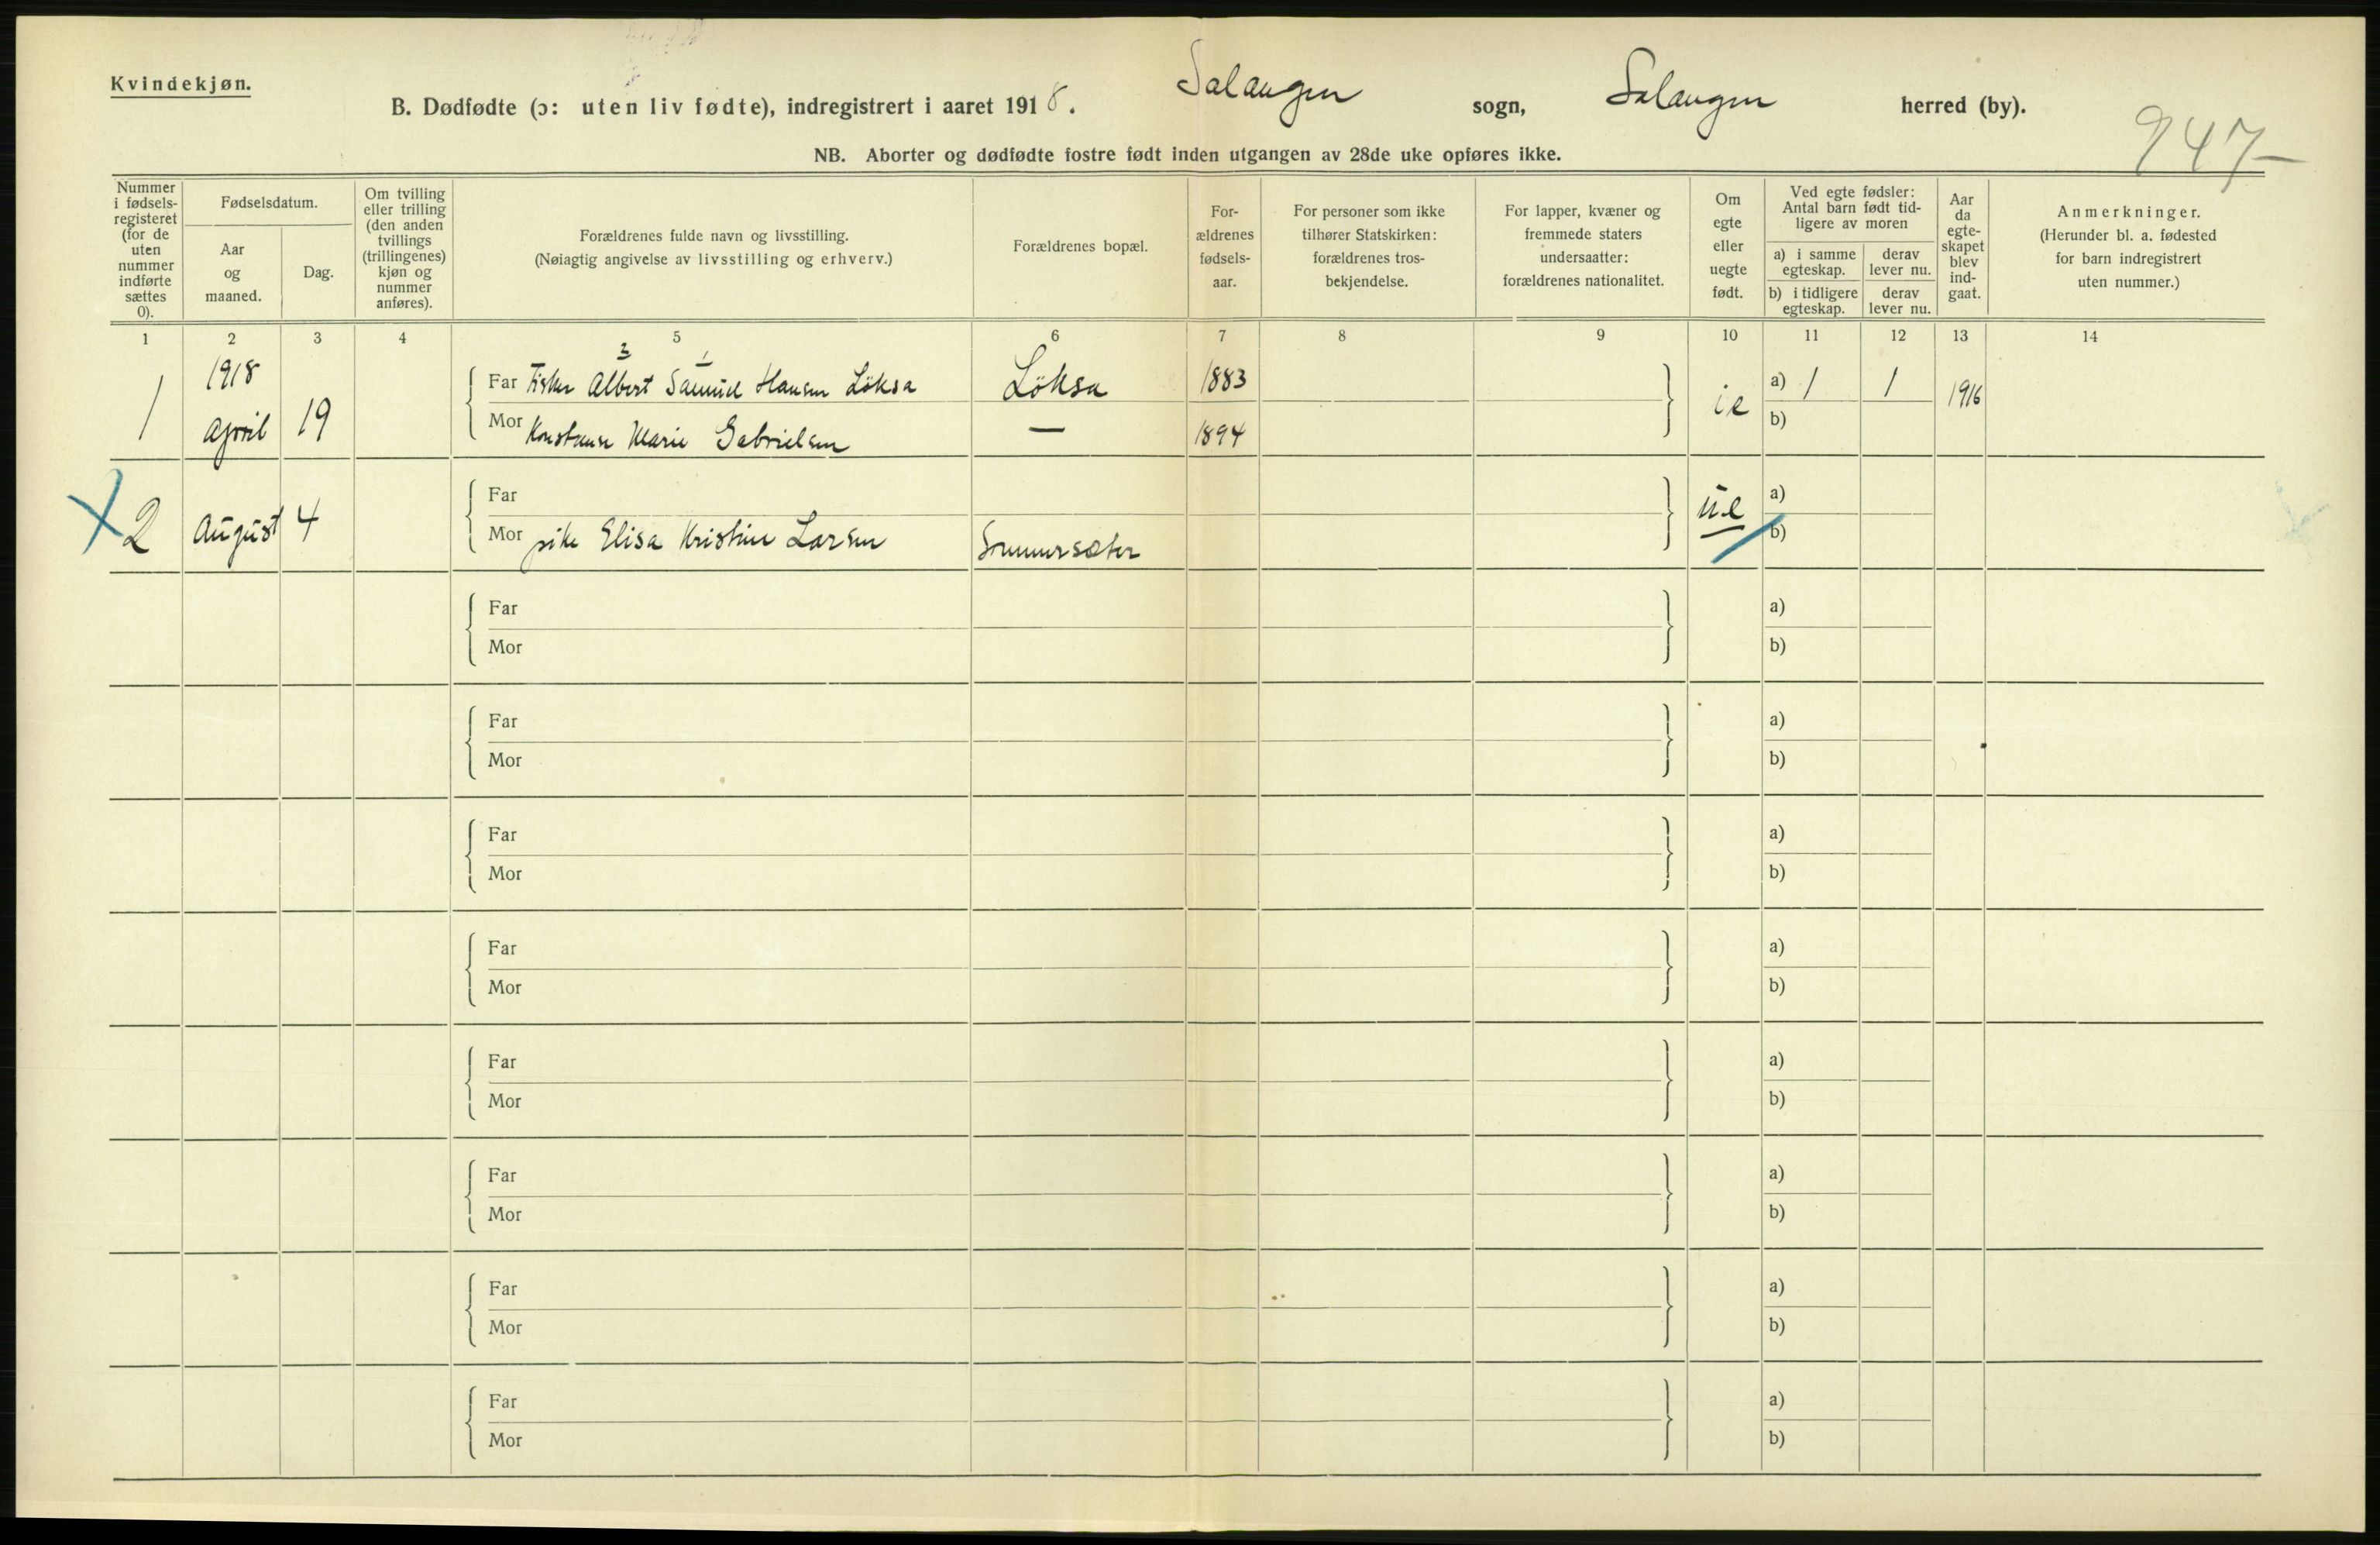 Kvindekjøn.
B. Dødfødte (ɔ: uten liv fødte), indregistrert i aaret 1918. Salangen sogn, Salangen herred (by).
947
NB. Aborter og dødfødte fostre født inden utgangen av 28de uke opføres ikke.
Nummer i fødsels-registeret (for de uten nummer indførte sættes 0).
Fødselsdatum.
Aar og maaned.
Dag.
Om tvilling eller trilling (den anden tvillings (trillingenes) kjøn og nummer anføres).
Forældrenes fulde navn og livsstilling.
(Nøiagtig angivelse av livsstilling og erhverv.)
Forældrenes bopæl.
For-ældrenes fødsels-aar.
For personer som ikke tilhører Statskirken: forældrenes tros-bekjendelse.
For lapper, kvæner og fremmede staters undersaatter: forældrenes nationalitet.
Om egte eller uegte født.
Ved egte fødsler: Antal barn født tid-ligere av moren
a) i samme egteskap.
derav lever nu.
b) i tidligere egteskap.
derav lever nu.
Aar da egte-skapet blev ind-gaat.
Anmerkninger.
(Herunder bl. a. fødested for barn indregistrert uten nummer.)
1 2 3 4 5 6 7 8 9 10 11 12 13 14
2 1
1 1918 April 19 Far Fisker Albert Samuel Hansen Löksa Löksa 1883 ie a) 1 1 1916
Mor Konstanse Marie Gabrielsen — 1894 b)
2 August 4 Far ue a)
Mor pike Elisa Kristine Larsen Sommersæter b)
Far a)
Mor b)
Far a)
Mor b)
Far a)
Mor b)
Far a)
Mor b)
Far a)
Mor b)
Far a)
Mor b)
Far a)
Mor b)
Far a)
Mor b)